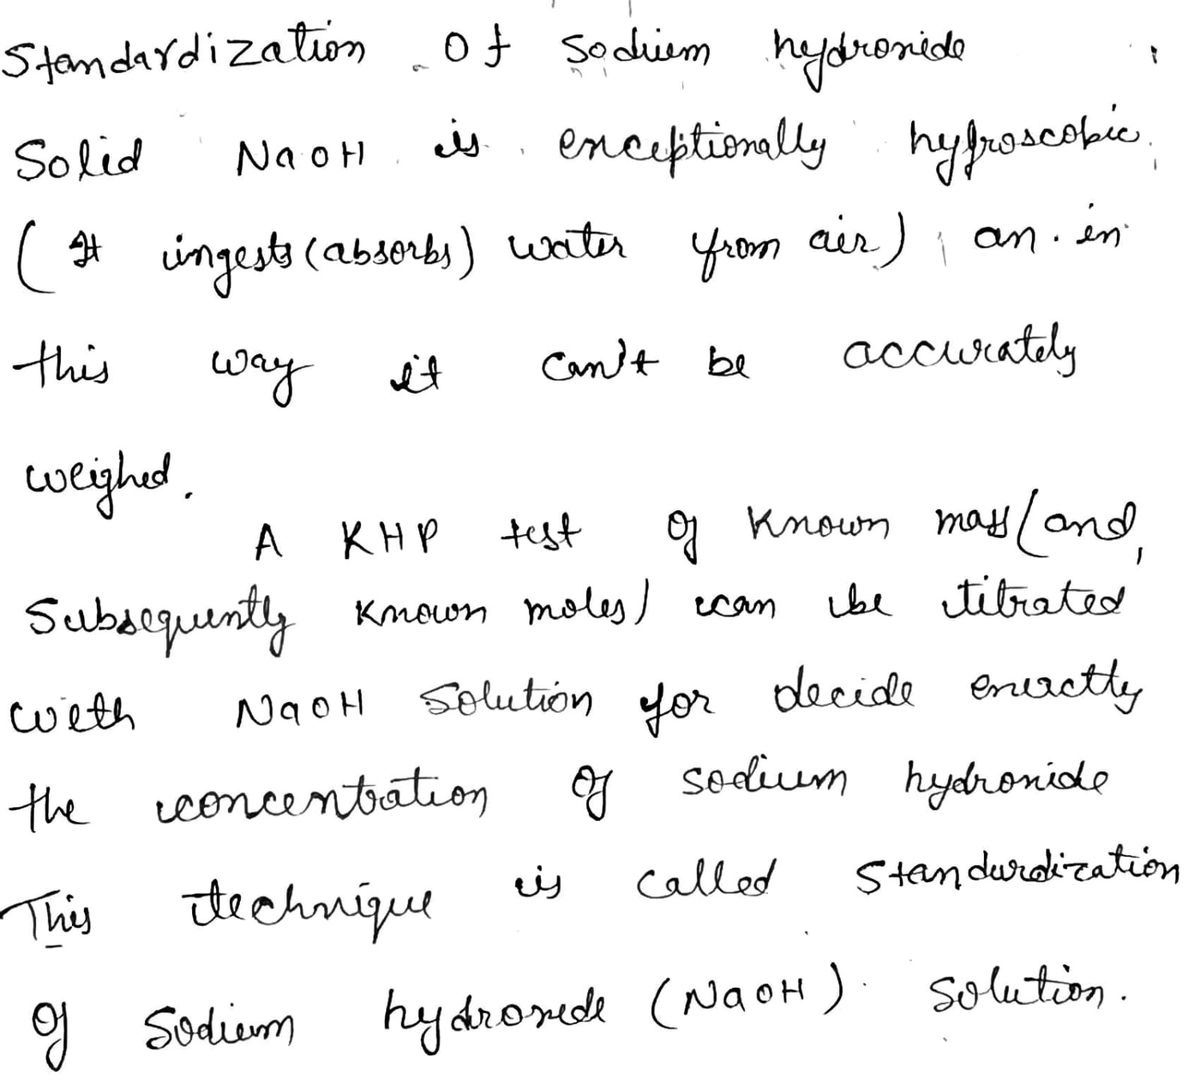 Standardization of sodium hydroxide
Solid NaOH is exceptionally hygroscobic
( It ingests (absorbs) water from air) an in
this way it can't be accurately
weighed.
A KHP test of known mass (and,
Subsequently known moles) can be titrated
with NaOH solution for decide exactly
the concentration of sodium hydroxide
This technique is called Standardization
of Sodium hydroxide (NaOH). solution.